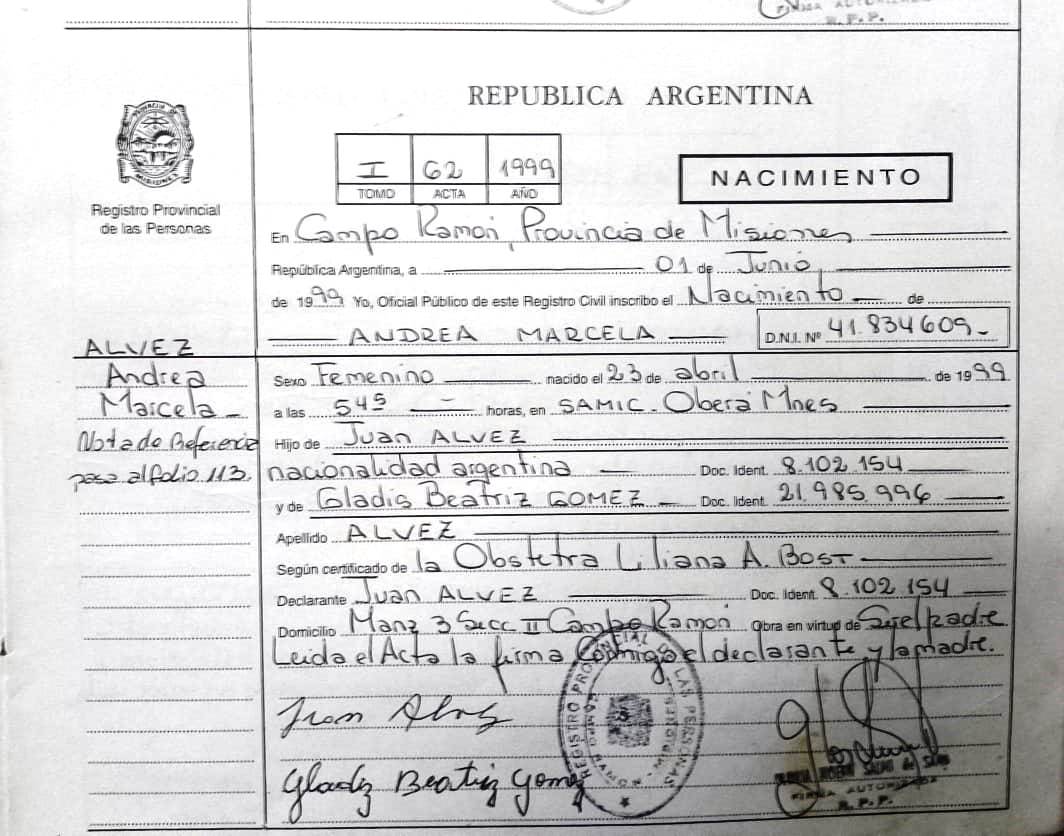 R. P. P.
REPUBLICA ARGENTINA
I 62 1999
TOMO ACTA AÑO
NACIMIENTO
Registro Provincial
de las Personas
En Campo Ramon, Provincia de Misiones
República Argentina, a 01 de Junio,
de 1999 Yo, Oficial Público de este Registro Civil inscribo el Nacimiento de
ANDREA MARCELA D.N.I. Nº 41.834609-
ALVEZ
Andrea
Marcela -
Nota de Referencia
pasa al folio 113.
Sexo Femenino nacido el 23 de abril de 1999
a las 5 45 horas, en SAMIC. Oberá Mnes
Hijo de Juan ALVEZ
nacionalidad argentina Doc. Ident. 8.102.154
y de Gladis Beatriz GOMEZ Doc. Ident. 21.985.996
Apellido ALVEZ
Según certificado de la Obstetra Liliana A. BOST
Declarante Juan ALVEZ Doc. Ident. 8.102.154
Domicilio Manz 3 Secc II Campo Ramon Obra en virtud de Ser el padre
Leida el Acta la firma Conmigo el declarante y la madre.
REGISTRO PROVINCIAL DE LAS PERSONAS
Juan Alvez
Gladiz Beatriz Gomez
FIRMA AUTORIZADA
R. P. P.